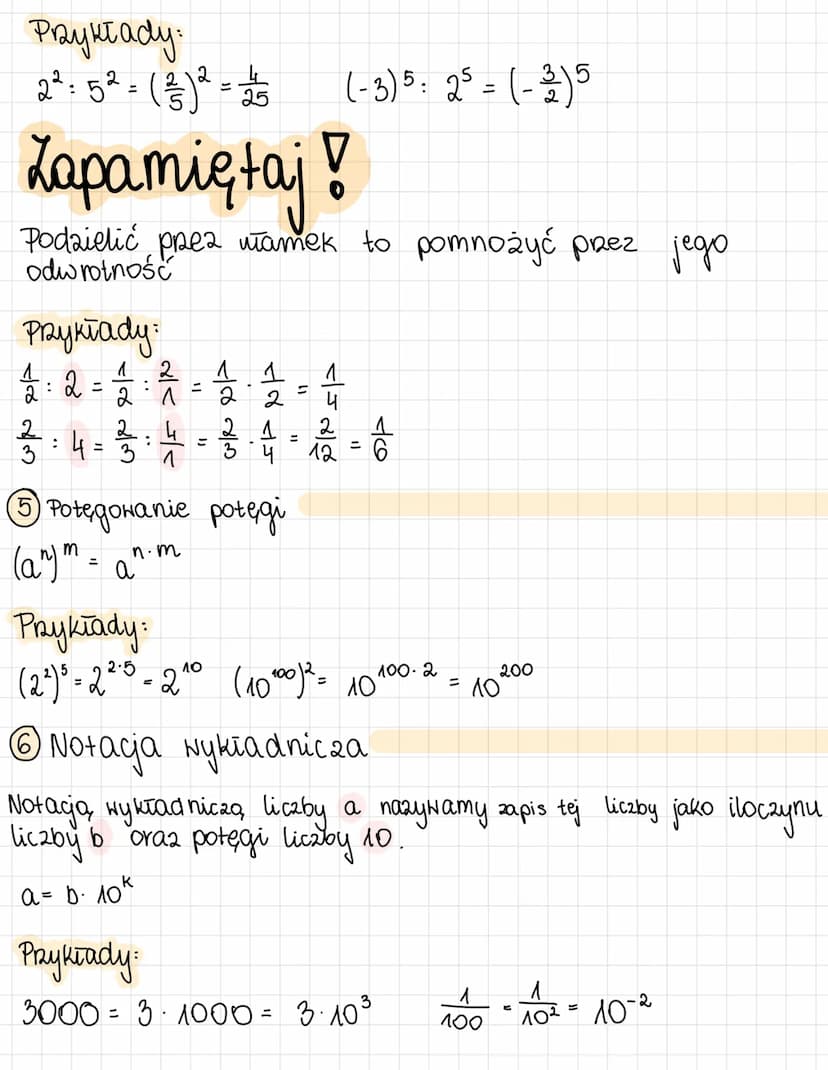 Przykłady:
2² : 5² = (2/5)² = 4/25 (-3)⁵ : 2⁵ = (-3/2)⁵
Zapamiętaj!
Podzielić przez ułamek to pomnożyć przez jego
odwrotność
Przykłady:
1/2 : 2 = 1/2 : 2/1 = 1/2 · 1/2 = 1/4
2/3 : 4 = 2/3 : 4/1 = 2/3 · 1/4 = 2/12 = 1/6
5 Potęgowanie potęgi
(aⁿ)ᵐ = aⁿ·ᵐ
Przykłady:
(2²)⁵ = 2²·⁵ = 2¹⁰ (10¹⁰⁰)² = 10¹⁰⁰·² = 10²⁰⁰
6 Notacja wykładnicza
Notacją wykładniczą liczby a nazywamy zapis tej liczby jako iloczynu
liczby b oraz potęgi liczby 10.
a = b · 10ᵏ
Przykłady:
3000 = 3 · 1000 = 3 · 10³ 1/100 = 1/10² = 10⁻²